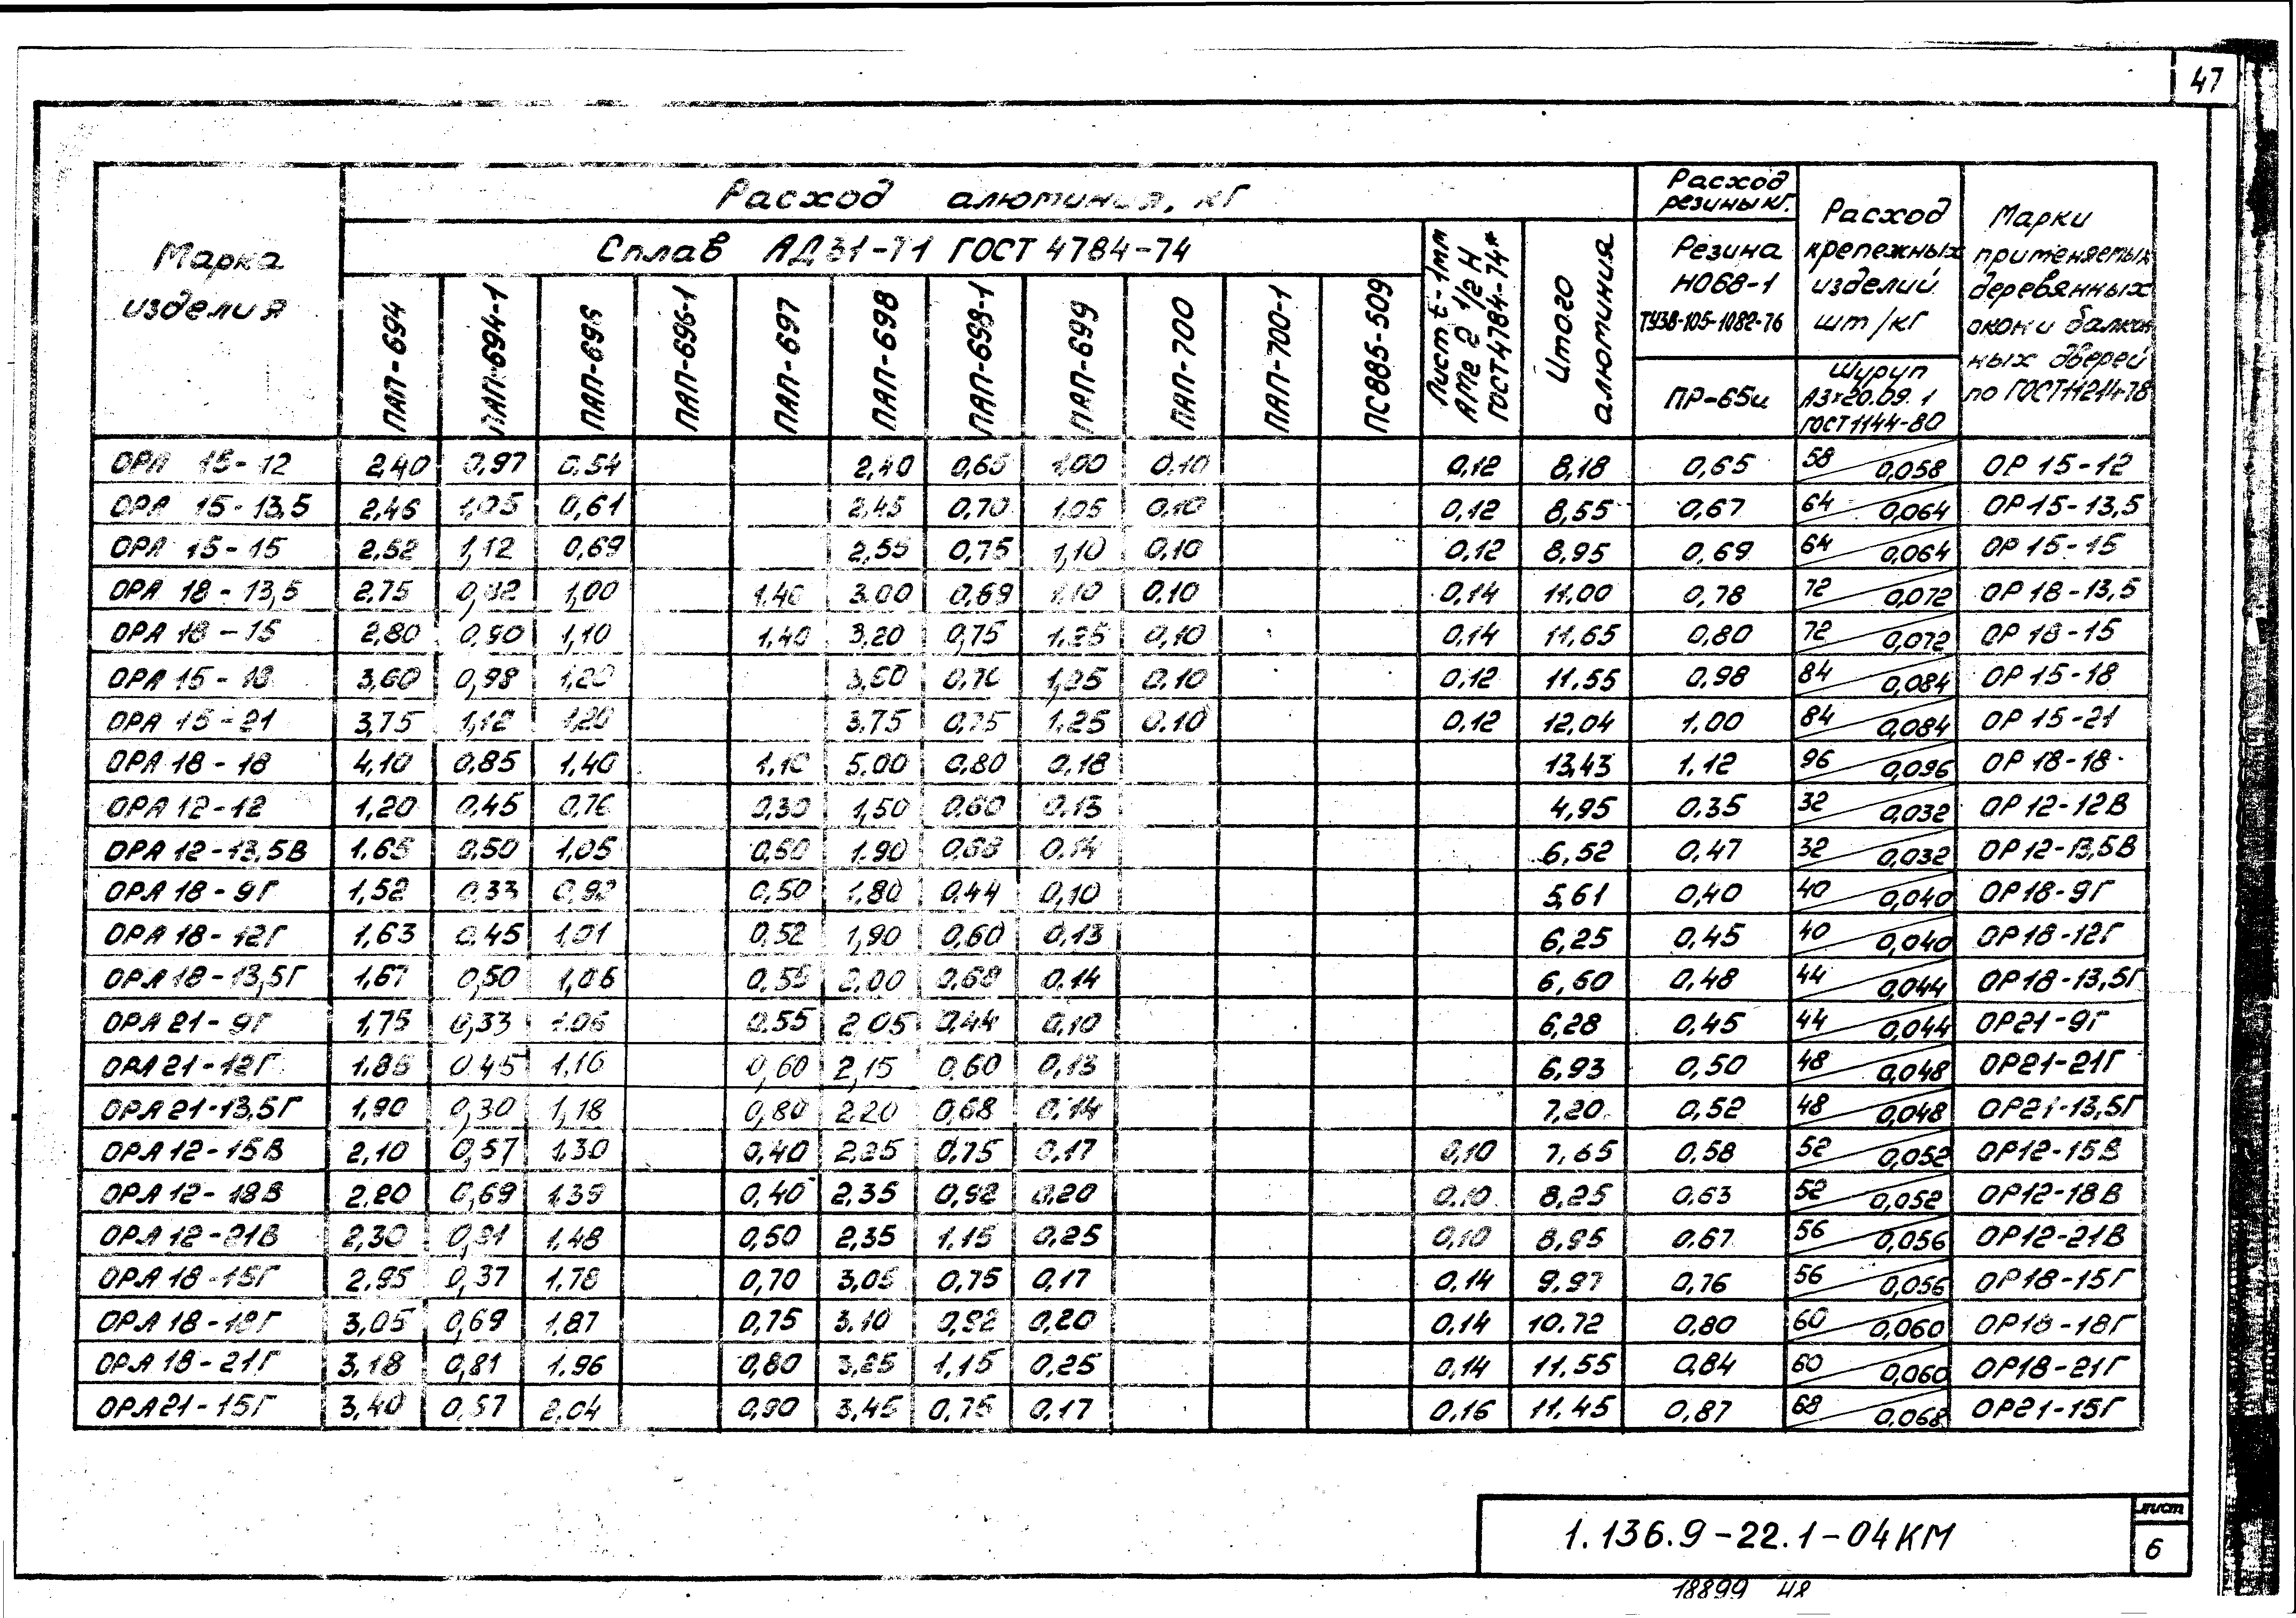 47
Марка изделия | Расход алюминия, кг | Расход резины кг. | Расход крепежных изделий шт/кг | Марки применяемых деревянных окон и балкон ных дверей по ГОСТ 11214-78
Сплав АД31-Т1 ГОСТ 4784-74 | Лист t-1мм АМг 2 1/2 Н ГОСТ 4784-74* | Итого алюминия | Резина НО68-1 ТУ38-105-1082-76
ПАП-694 | ПАП-694-1 | ПАП-696 | ПАП-696-1 | ПАП-697 | ПАП-698 | ПАП-698-1 | ПАП-699 | ПАП-700 | ПАП-700-1 | ПС885-509 | ПР-65и | Шуруп А3×20.09.1 ГОСТ 1144-80
ОРА 15-12 2,40 0,97 0,54 2,40 0,65 1,00 0,10 0,12 8,18 0,65 58 0,058 ОР 15-12
ОРА 15-13,5 2,46 1,05 0,61 2,45 0,70 1,05 0,10 0,12 8,55 0,67 64 0,064 ОР 15-13,5
ОРА 15-15 2,52 1,12 0,69 2,55 0,75 1,10 0,10 0,12 8,95 0,69 64 0,064 ОР 15-15
ОРА 18-13,5 2,75 0,82 1,00 1,40 3,00 0,69 1,10 0,10 0,14 11,00 0,78 72 0,072 ОР 18-13,5
ОРА 18-15 2,80 0,90 1,10 1,40 3,20 0,75 1,25 0,10 0,14 11,65 0,80 72 0,072 ОР 18-15
ОРА 15-18 3,60 0,98 1,20 3,60 0,70 1,25 0,10 0,12 11.55 0,98 84 0,084 ОР 15-18
ОРА 15-21 3,75 1,12 1,20 3,75 0,75 1,25 0,10 0,12 12,04 1.00 84 0,084 ОР 15-21
ОРА 18-18 4,10 0,85 1,40 1,10 5,00 0,80 0,18 13,43 1.12 96 0,096 ОР 18-18
ОРА 12-12 1,20 0,45 0,76 0,30 1,50 0,60 0,13 4,95 0.35 32 0,032 ОР 12-12В
ОРА 12-13,5В 1.65 0,50 1,05 0,50 1.90 0,68 0,14 6,52 0,47 32 0,032 ОР 12-13,5В
ОРА 18-9Г 1,52 0,33 0,92 0,50 1,80 0,44 0,10 5,61 0,40 40 0,040 ОР18-9Г
ОРА 18-12Г 1,63 0,45 1,01 0,52 1,90 0,60 0,13 6,25 0,45 40 0,040 ОР18-12Г
ОРА 18-13,5Г 1,67 0,50 1,06 0,55 2,00 0,68 0,14 6,60 0,48 44 0,044 ОР18-13,5Г
ОРА 21-9Г 1,75 0,33 1.06 0,55 2,05 0,44 0,10 6,28 0,45 44 0,044 ОР21-9Г
ОРА 21-12Г 1,85 0,45 1,16 0,60 2,15 0,60 0,13 6,93 0,50 48 0,048 ОР21-21Г
ОРА 21-13,5Г 1,90 0,30 1,18 0,80 2,20 0,68 0,14 7,20 0,52 48 0,048 ОР21-13,5Г
ОРА 12-15В 2,10 0,57 1,30 0,40 2,25 0,75 0,17 0,10 7,65 0,58 52 0,052 ОР12-15В
ОРА 12-18В 2,20 0,69 1,39 0,40 2,35 0,92 0,20 0,10 8,25 0,63 52 0,052 ОР12-18В
ОРА 12-21В 2,30 0,81 1,48 0,50 2,35 1,15 0,25 0,10 8,95 0,67 56 0,056 ОР12-21В
ОРА 18-15Г 2,95 0,37 1.78 0,70 3,05 0,75 0,17 0.14 9.97 0,76 56 0,056 ОР18-15Г
ОРА 18-18Г 3,05 0,69 1.87 0,75 3.10 0,92 0,20 0.14 10.72 0,80 60 0,060 ОР18-18Г
ОРА 18-21Г 3,18 0,81 1.96 0,80 3,25 1,15 0,25 0.14 11.55 0,84 60 0,060 ОР18-21Г
ОРА 21-15Г 3,40 0,57 2,04 0,90 3,45 0,75 0,17 0.16 11.45 0,87 68 0,068 ОР21-15Г
1.136.9-22.1-04КМ
лист
6
18899 48